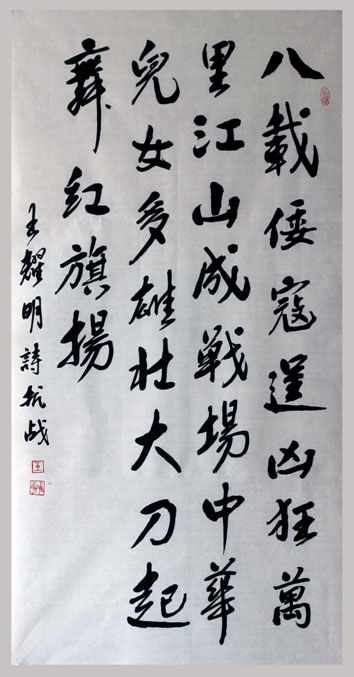 八載倭寇逞凶狂萬
里江山成戰場中華
兒女多雄壯大刀起
舞紅旗揚
王耀明詩抗战